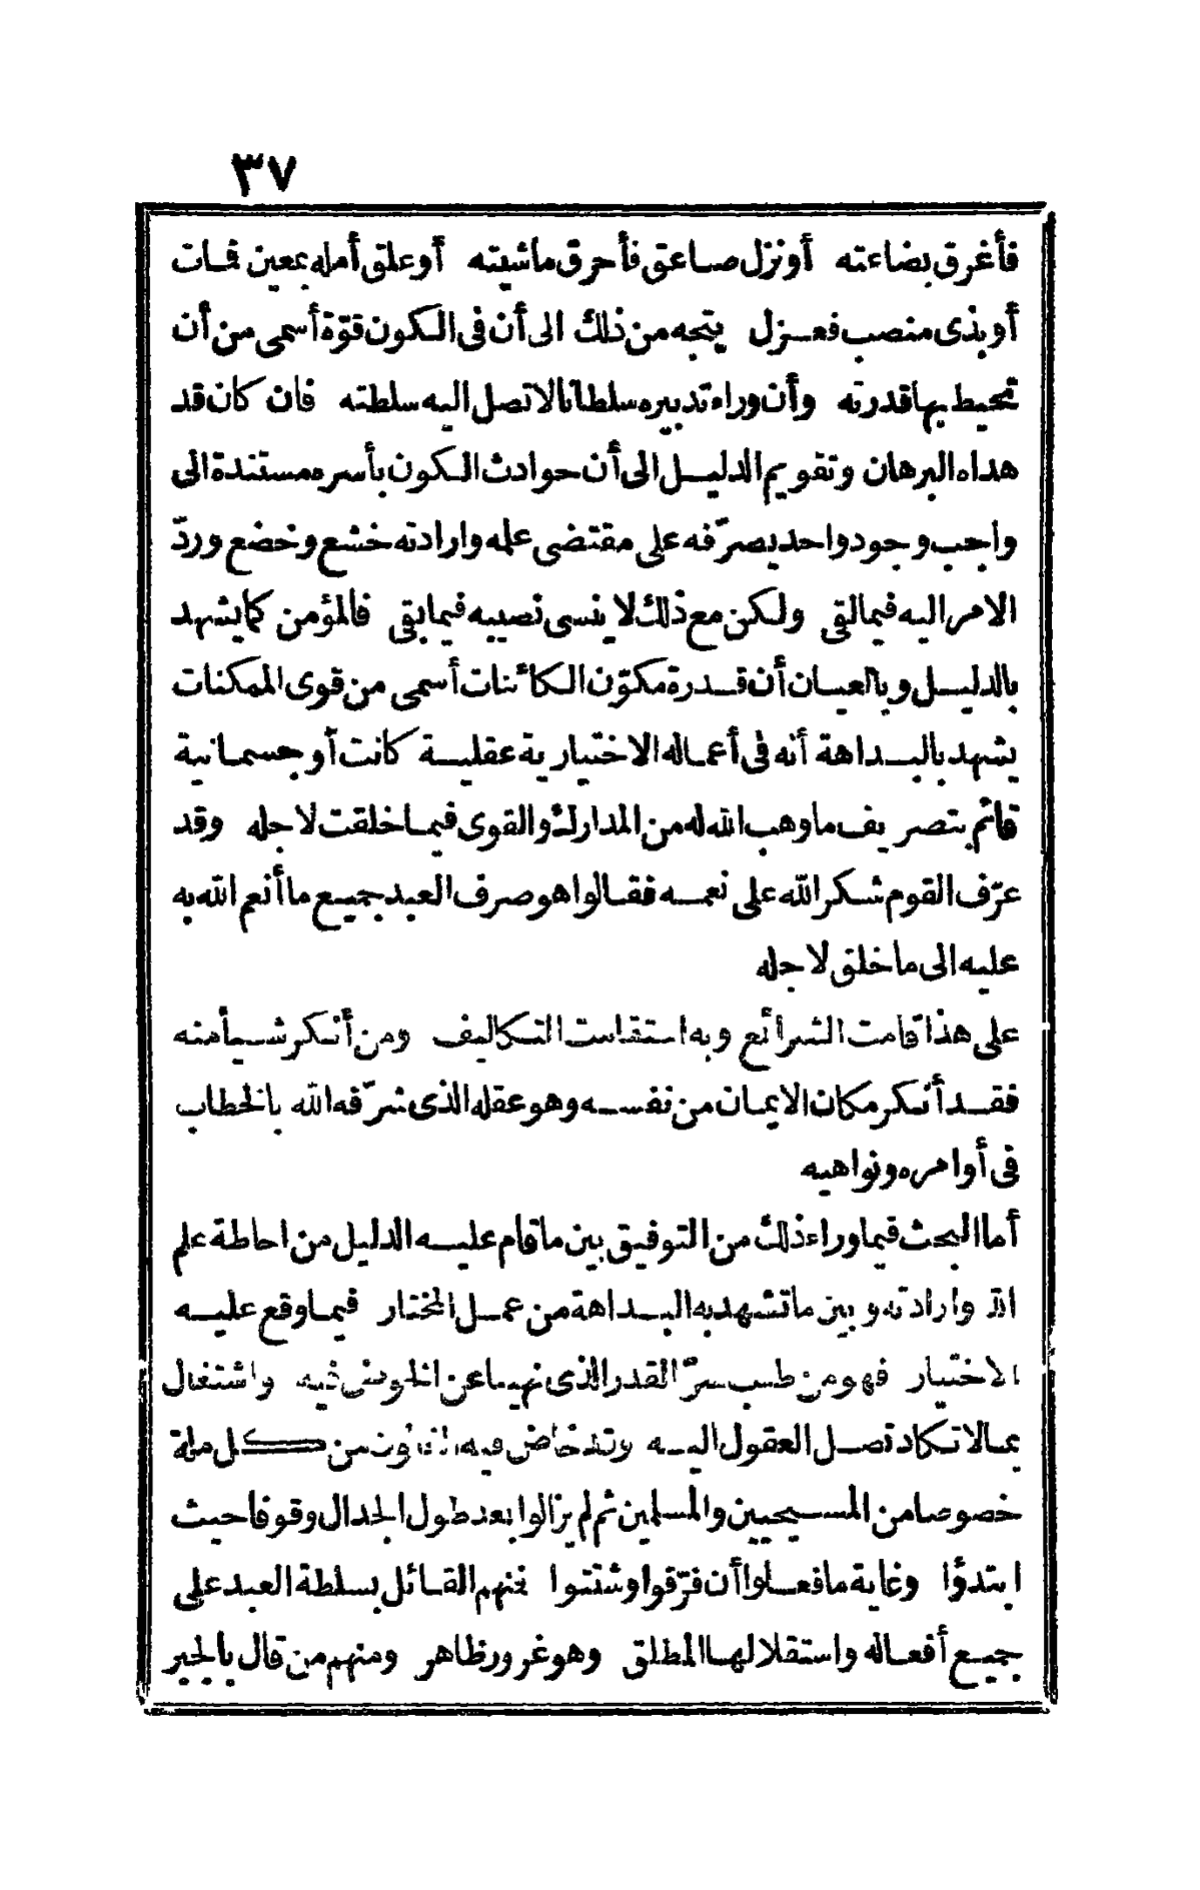 ٣٧
فأغرق بضاعته أو نزل صاعق فأحرق ماشيته أو علق أمله بمعين فمات
أو بذى منصب فعزل يتجه من ذلك الى أن فى الكون قوّة أسمى من أن
تحيط بها قدرته وأن وراء تدبيره سلطانا لا تصل اليه سلطته فان كان قد
هداه البرهان وتقويم الدليل الى أن حوادث الكون بأسره مستندة الى
واجب وجود واحد يصرّفه على مقتضى علمه وارادته خشع وخضع وردّ
الامر اليه فيما لقى ولكن مع ذلك لا ينسى نصيبه فيما بقى فالمؤمن كما يشهد
بالدليل وبالعيان أن قدرة مكوّن الكائنات أسمى من قوى الممكنات
يشهد بالبداهة أنه فى أعماله الاختيارية عقلية كانت أو جسمانية
قائم بتصريف ما وهب الله له من المدارك والقوى فيما خلقت لاجله وقد
عرّف القوم شكر الله على نعمه فقالوا هو صرف العبد جميع ما أنعم الله به
عليه الى ما خلق لاجله
على هذا قامت الشرائع وبه استقامت التكاليف ومن أنكر شيأ منه
فقد أنكر مكان الايمان من نفسه وهو عقله الذى شرّفه الله بالخطاب
فى أوامره ونواهيه
أما البحث فيما وراء ذلك من التوفيق بين ما قام عليه الدليل من احاطة علم
الله وارادته وبين ما تشهد به البداهة من عمل المختار فيما وقع عليه
الاختيار فهو من طلب سرّ القدر الذى نهينا عن الخوض فيه واشتغال
بما لا تكاد تصل العقول اليه وقد خاض فيه الغالون من كل ملة
خصوصا من المسيحيين والمسلمين ثم لم يزالوا بعد طول الجدال وقوفا حيث
ابتدؤا وغاية ما فعلوا أن فرّقوا وشتتوا فمنهم القائل بسلطة العبد على
جميع أفعاله واستقلالها المطلق وهو غرور ظاهر ومنهم من قال بالجبر